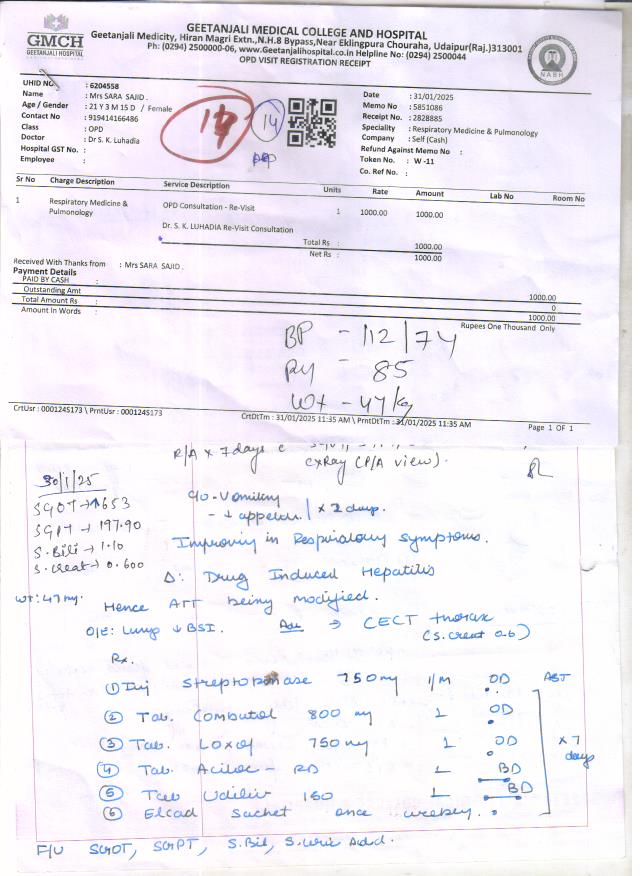 GMCH
GEETANJALI HOSPITAL
GEETANJALI MEDICAL COLLEGE AND HOSPITAL
Geetanjali Medicity, Hiran Magri Extn.,N.H.8 Bypass,Near Eklingpura Chouraha, Udaipur(Raj.)313001
Ph: (0294) 2500000-06, www.Geetanjalihospital.co.in Helpline No: (0294) 2500044
OPD VISIT REGISTRATION RECEIPT
NABH
UHID NO : 6204558
Name : Mrs SARA SAJID .
Age / Gender : 21 Y 3 M 15 D / Female
Contact No : 919414166486
Class : OPD
Doctor : Dr S. K. Luhadia
Hospital GST No. :
Employee :
14
Date : 31/01/2025
Memo No : 5851086
Receipt No. : 2828885
Speciality : Respiratory Medicine & Pulmonology
Company : Self (Cash)
Refund Against Memo No :
Token No. : W -11
Co. Ref No. :
Sr No Charge Description Service Description Units Rate Amount Lab No Room No
1 Respiratory Medicine & Pulmonology OPD Consultation - Re-Visit 1 1000.00 1000.00
Dr. S. K. LUHADIA Re-Visit Consultation
Total Rs : 1000.00
Net Rs : 1000.00
Received With Thanks from : Mrs SARA SAJID .
Payment Details
PAID BY CASH : 1000.00
Outstanding Amt 0
Total Amount Rs : 1000.00
Amount In Words : Rupees One Thousand Only
BP - 112/74
85
Wt - 47 kg
CrtUsr : 0001245173 \ PrntUsr : 0001245173
CrtDtTm : 31/01/2025 11:35 AM \ PrntDtTm : 31/01/2025 11:35 AM
Page 1 OF 1
R/A x 7 days c
CXRay (P/A view).
30/1/25
SGOT → 1653
SGPT → 197.90
S.Bili → 1.10
S.creat → 0.600
wt: 47 kg.
c/o - Vomiting
- ↓ appetite | x 2 days.
Improving in Respiratory symptoms.
Δ: Drug Induced Hepatitis
Hence ATT being modified.
O/E: Lung ↓ BSI. Adv → CECT thorax
(S.creat 0.6)
Rx.
① Inj 750 mg I/M OD AST
② Tab. Combutol 800 mg 1 OD
③ Tab. Loxof 750 mg 1 OD
④ Tab. Aciloc - RD 1 BD
⑤ Tab Udiliv 150 1 BD
⑥ Elcad Sachet once weekly.
x 7 days
F/U SGOT, SGPT, S.Bil, S.Uric Acid.